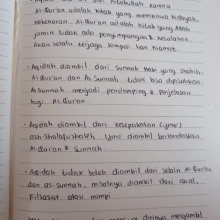 Al-Qur'an adalah kitab yang membawa
kebenaran. Al-Qur'an adalah kitab yang Allah
jamin tidak ada penyimpangan & kesalahan
akan selalu terjaga sampai hari kiamat.
- Aqidah diambil dari Sunnah Nabi yang shahih.
Al-Qur'an dan As Sunnah tidak bisa dipisahkan.
As Sunnah menjadi pendamping & Penjelasan
bagi Al-Quran.
- Aqidah diambil dari kesepakatan (ijma')
ash-Shalafushalih (yang diambil berlandaskan
Al-Quran & Sunnah.
- Aqidah tidak boleh diambil dari selain Al-Quran
dan as-Sunnah, misalnya diambil dari akal,
Filsafat atau mimpi